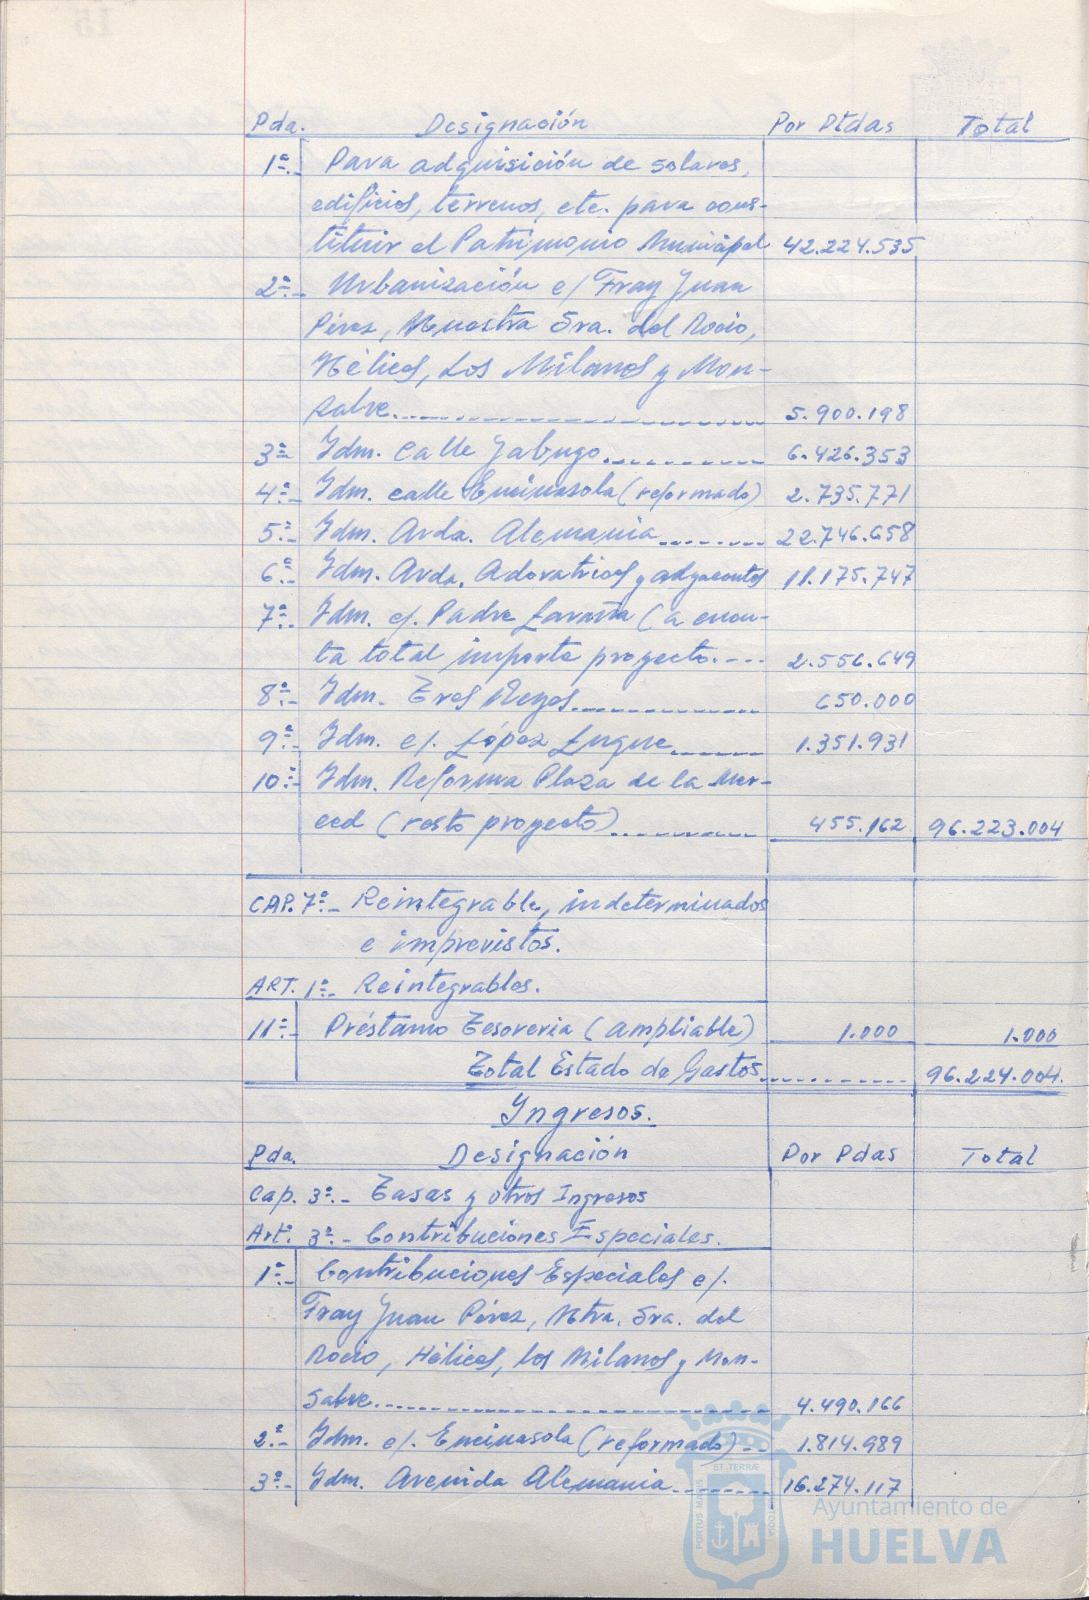 Pda. Designación Por Ptdas Total
1ª.- Para adquisición de solares,
edificios, terrenos, etc. para cons-
tituir el Patrimonio Municipal 42.224.535
2ª.- Urbanización c/ Fray Juan
Pérez, Nuestra Sra. del Rocio,
Hélices, Los Milanos y Mon-
salve.................... 5.900.198
3ª.- Idm. Calle Jabugo.......... 6.426.353
4ª.- Idm. calle Encinasola (reformado) 2.735.771
5ª.- Idm. Avda. Alemania........ 22.746.658
6ª.- Idm. Avda. Adoratrices y adyacentes 11.175.747
7ª.- Idm. c/. Padre Laraña (a cuen-
ta total importe proyecto.--- 2.556.649
8ª.- Idm. Tres Reyes............ 650.000
9ª.- Idm. c/. López Luque....... 1.351.931
10ª.- Idm. Reforma Plaza de la Mer-
ced (resto proyecto)........ 455.162 96.223.004
CAP. 7º.- Reintegrable, indeterminados
e imprevistos.
ART. 1º.- Reintegrables.
11ª.- Préstamo Tesoreria (ampliable) 1.000 1.000
Total Estado de Gastos............ 96.224.004.
Ingresos.
Pda. Designación Por Pdas Total
Cap. 3º.- Tasas y otros Ingresos
Artº. 3º.- Contribuciones Especiales.
1ª.- Contribuciones Especiales c/.
Fray Juan Pérez, Ntra. Sra. del
Rocio, Hélices, los Milanos y Mon-
salve.................... 4.490.166
2ª.- Idm. c/. Encinasola (reformado)-- 1.814.989
3ª.- Idm. Avenida Alemania........ 16.274.117
ET TERRÆ
PORTUS MARIS
CUSTODIA
Ayuntamiento de
HUELVA